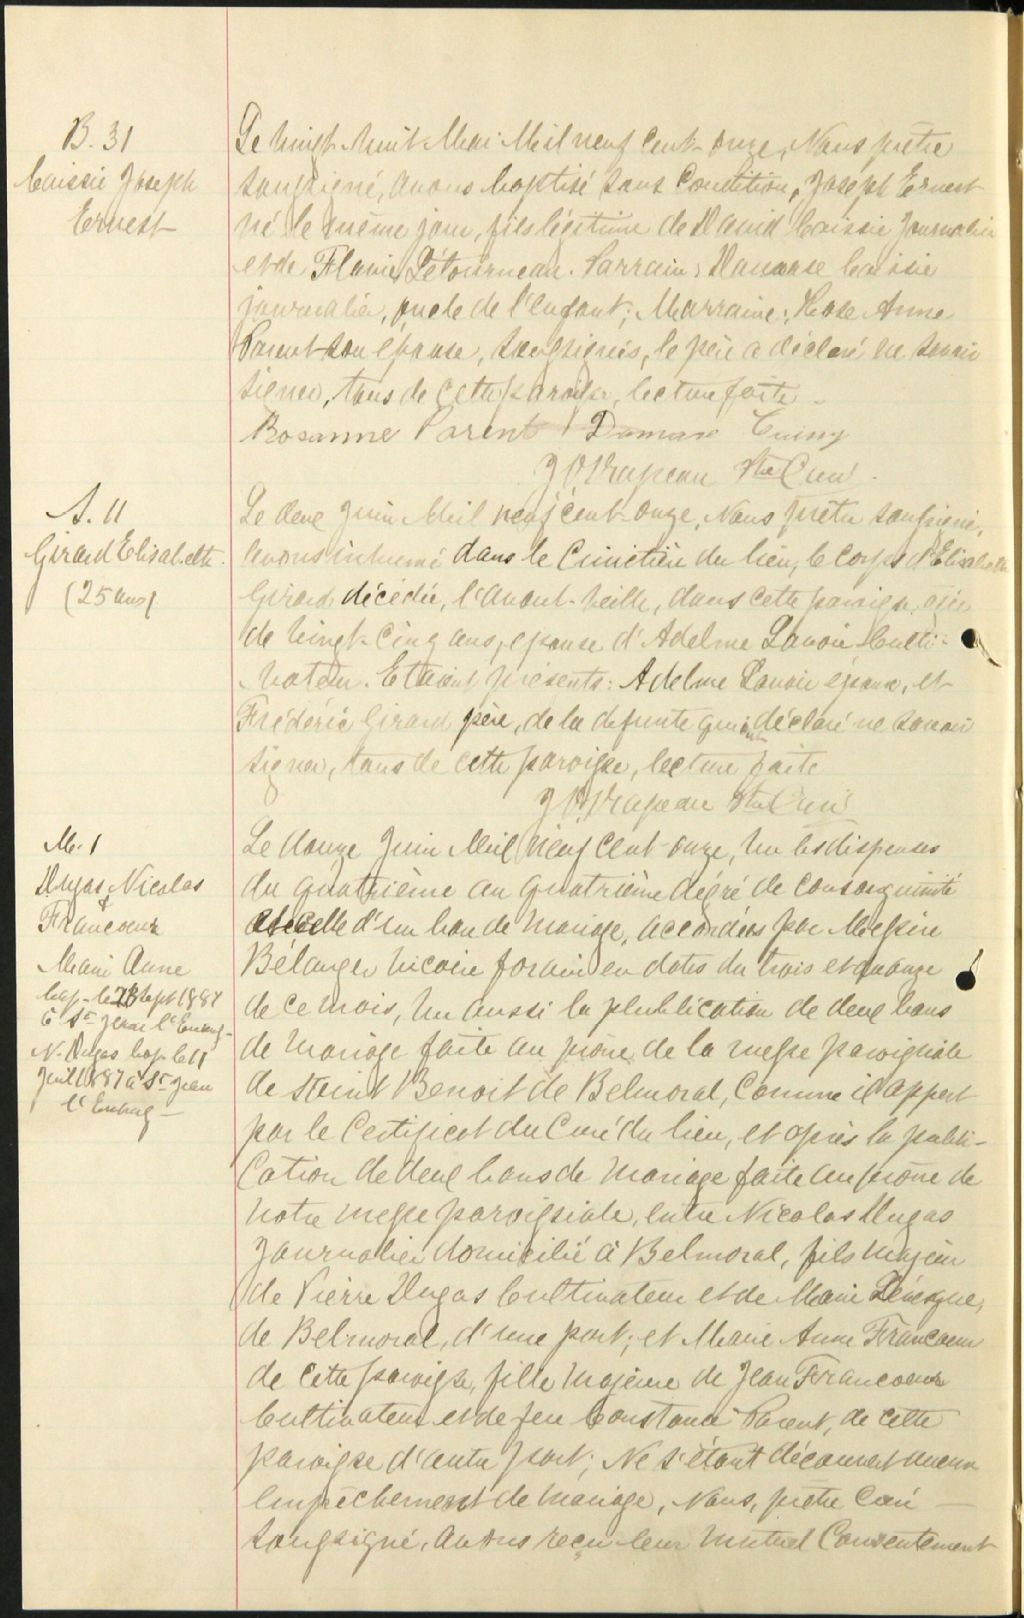 B. 31
Caissie Joseph
Ernest
Le vingt-huit Mai Mil neuf cent-onze, Nous prêtre
soussigné, avons baptisé sans Condition, Joseph Ernest
né le même jour, fils légitime de David Caissie Journalier
et de Flavie Létourneau. Parrain: Damase Caissie
journalier, oncle de l'enfant; Marraine: Rose Anne
Parent son épouse, soussignés, le père a déclaré ne savoir
signer, tous de cette paroisse, lecture faite
Rosanne Parent Damase
Ptre Curé
S. 11
Girard Elisabeth
(25 ans)
Le deux Juin Mil neuf cent-onze, Nous prêtre soussigné,
avons inhumé dans le Cimetière du lieu, le corps d'Elisabeth
Girard décédée, l'avant-veille, dans cette paroisse, agée
de vingt-cinq ans, épouse d'Adelme Lavoie Culti-
vateur. Etaient présents: Adelme Lavoie époux, et
Frédéric Girard père, de la defunte qui ont déclaré ne savoir
signer, tous de cette paroisse, lecture faite
Ptre Curé
M. 1
Dugas Nicolas
&
Francoeur
Marie Anne
bap. le 28 Sept 1887
à St Jean l'Evang-
N. Dugas bap. le 11
1887 à St Jean
l'Evang -
Le douze Juin Mil neuf cent-onze, Vu les dispenses
du quatrième au quatrième dégré de consanguinité
et celle d'un ban de mariage, accordées par Messire
Bélanger vicaire forain en dates du trois et du onze
de ce mois, Vu aussi la plublication de deux bans
de mariage faite au prône de la messe paroissiale
de Saint Benoit de Belmoral, Comme il appert
par le Certificat du Curé du lieu, et après la publi-
cation de deux bans de mariage faite au prône de
notre messe paroissiale, entre Nicolas Dugas
Journalier domicilié à Belmoral, fils majeur
de Pierre Dugas Cultivateur et de Marie Lévesque,
de Belmoral, d'une part; et Marie Anne Francoeur
de cette paroisse, fille majeure de Jean Francoeur
Cultivateur et de feu Constance Parent, de cette
paroisse d'autre part; Ne s'étant découvert aucun
empêchement de mariage, Nous, prêtre Curé
soussigné, avons reçu leur mutuel Consentement